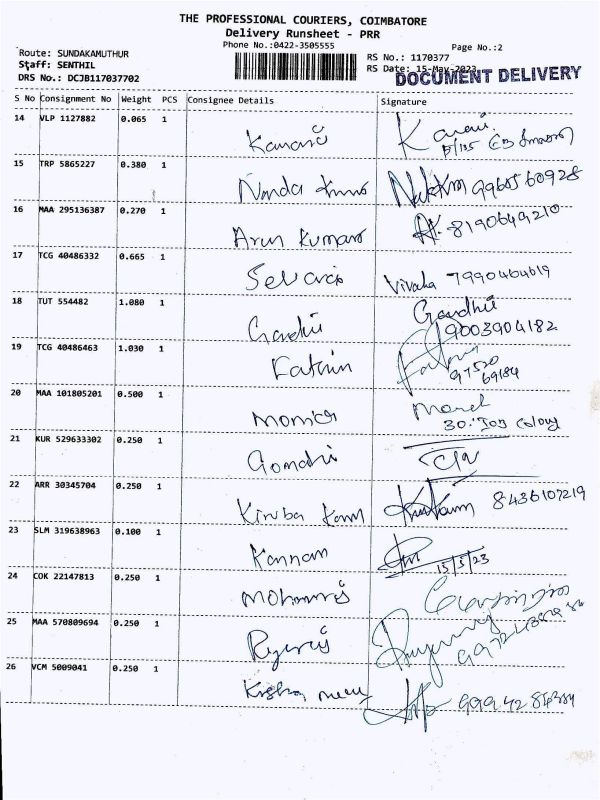 THE PROFESSIONAL COURIERS, COIMBATORE
Delivery Runsheet - PRR
Phone No.:0422-3505555
Page No.:2
Route: SUNDAKAMUTHUR
Staff: SENTHIL
DRS No.: DCJB117037702
RS No.: 1170377
RS Date: 15-May-2023
DOCUMENT DELIVERY
S No Consignment No Weight PCS Consignee Details Signature
14 VLP 1127882 0.065 1
15 TRP 5865227 0.380 1 Nanda
16 MAA 295136387 0.270 1 Arun Kumar 8190649210
17 TCG 40486332 0.665 1 Selvaraj 7990464619
18 TUT 554482 1.080 1 Gandhi Gandhi
9003904182
19 TCG 40486463 1.030 1 Kathrin
97520
69184
20 MAA 101805201 0.500 1 Monica
30. Colony
21 KUR 529633302 0.250 1 Gomathi
22 ARR 30345704 0.250 1 Kiruba 8436107219
23 SLM 319638963 0.100 1 Kannan
15/5/23
24 COK 22147813 0.250 1 Mohanraj
25 MAA 570809694 0.250 1
26 VCM 5009041 0.250 1 Krishna